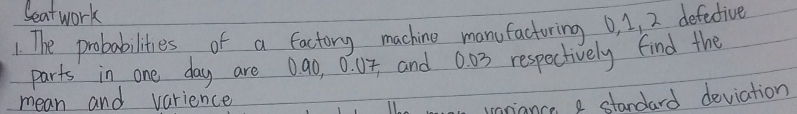 Seatwork
1. The probabilities of a factory machine manufacturing 0,1,2 defective
parts in one day are 0.90, 0.07, and 0.03 respectively find the
mean and varience
variance & standard deviation